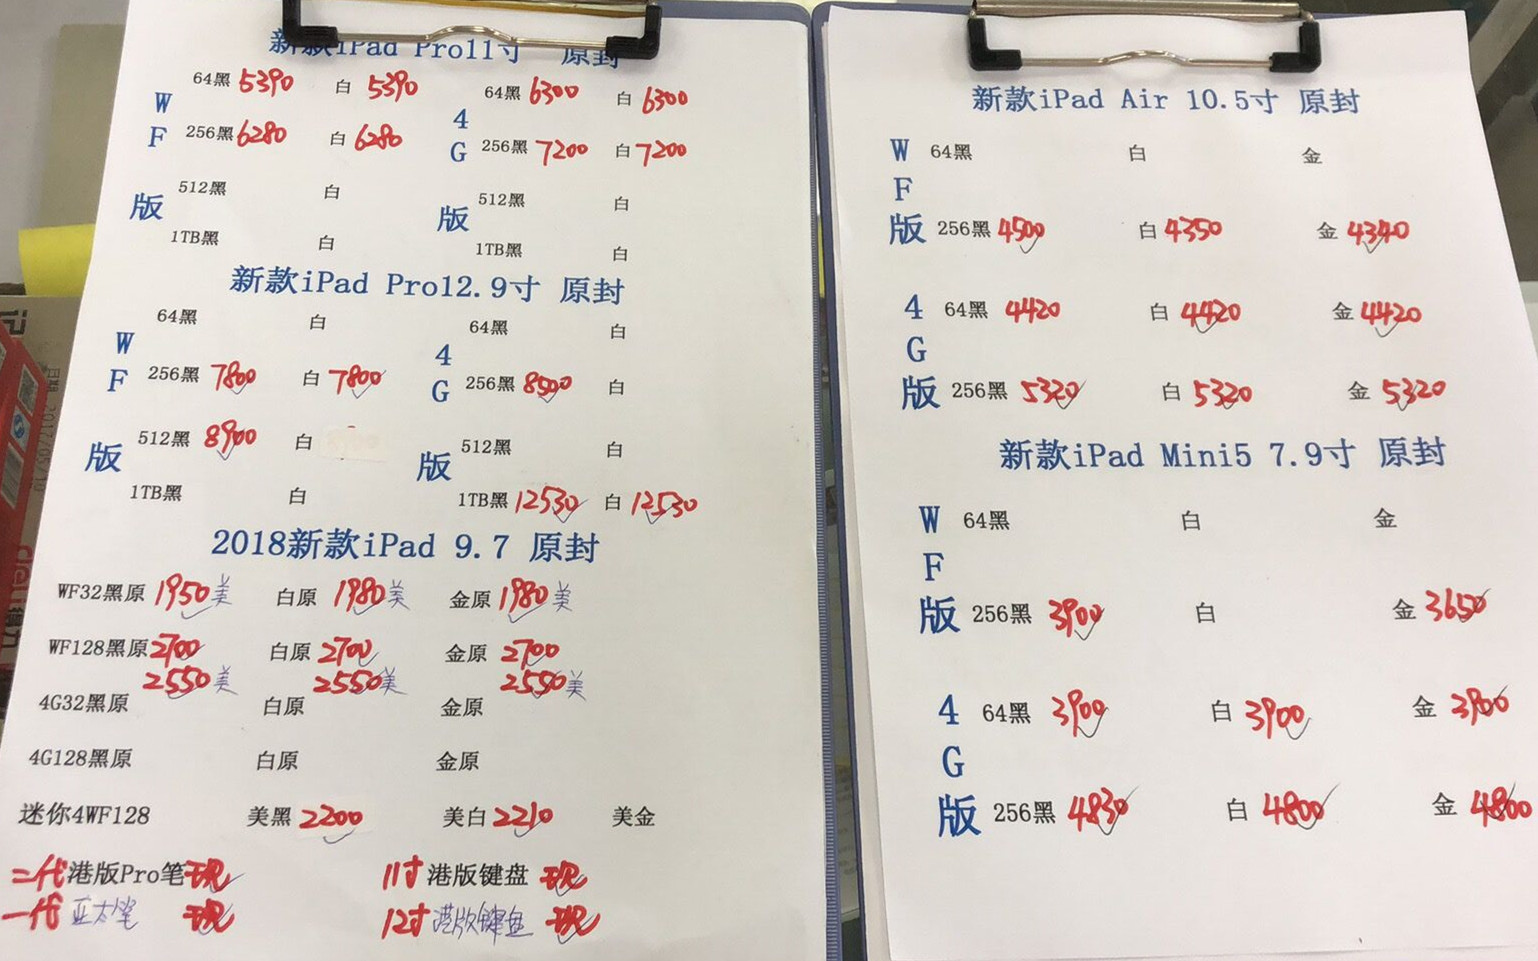 新款iPad Pro11寸 原封
64黑 5390 白 5390 64黑 6300 白 6300
W 4
F 256黑 6280 白 6280 G 256黑 7200 白 7200
版 512黑 白 版 512黑 白
1TB黑 白 1TB黑 白
新款iPad Pro12.9寸 原封
64黑 白 64黑 白
W 4
F 256黑 7800 白 7800 G 256黑 8500 白
版 512黑 8900 白 版 512黑 白
1TB黑 白 1TB黑 12530 白 12530
2018新款iPad 9.7 原封
WF32黑原 1950美 白原 1980美 金原 1980美
WF128黑原 2700 白原 2700 金原 2700
2550美 2550美 2550美
4G32黑原 白原 金原
4G128黑原 白原 金原
迷你4WF128 美黑 2200 美白 2210 美金
二代 港版Pro笔 现 11寸 港版键盘 现
一代 亚太笔 现 12寸 港版键盘 现
新款iPad Air 10.5寸 原封
W 64黑 白 金
F
版 256黑 4500 白 4350 金 4340
4 64黑 4420 白 4420 金 4420
G
版 256黑 5320 白 5320 金 5320
新款iPad Mini5 7.9寸 原封
W 64黑 白 金
F
版 256黑 3900 白 金 3650
4 64黑 3900 白 3900 金 3900
G
版 256黑 4830 白 4800 金 4800